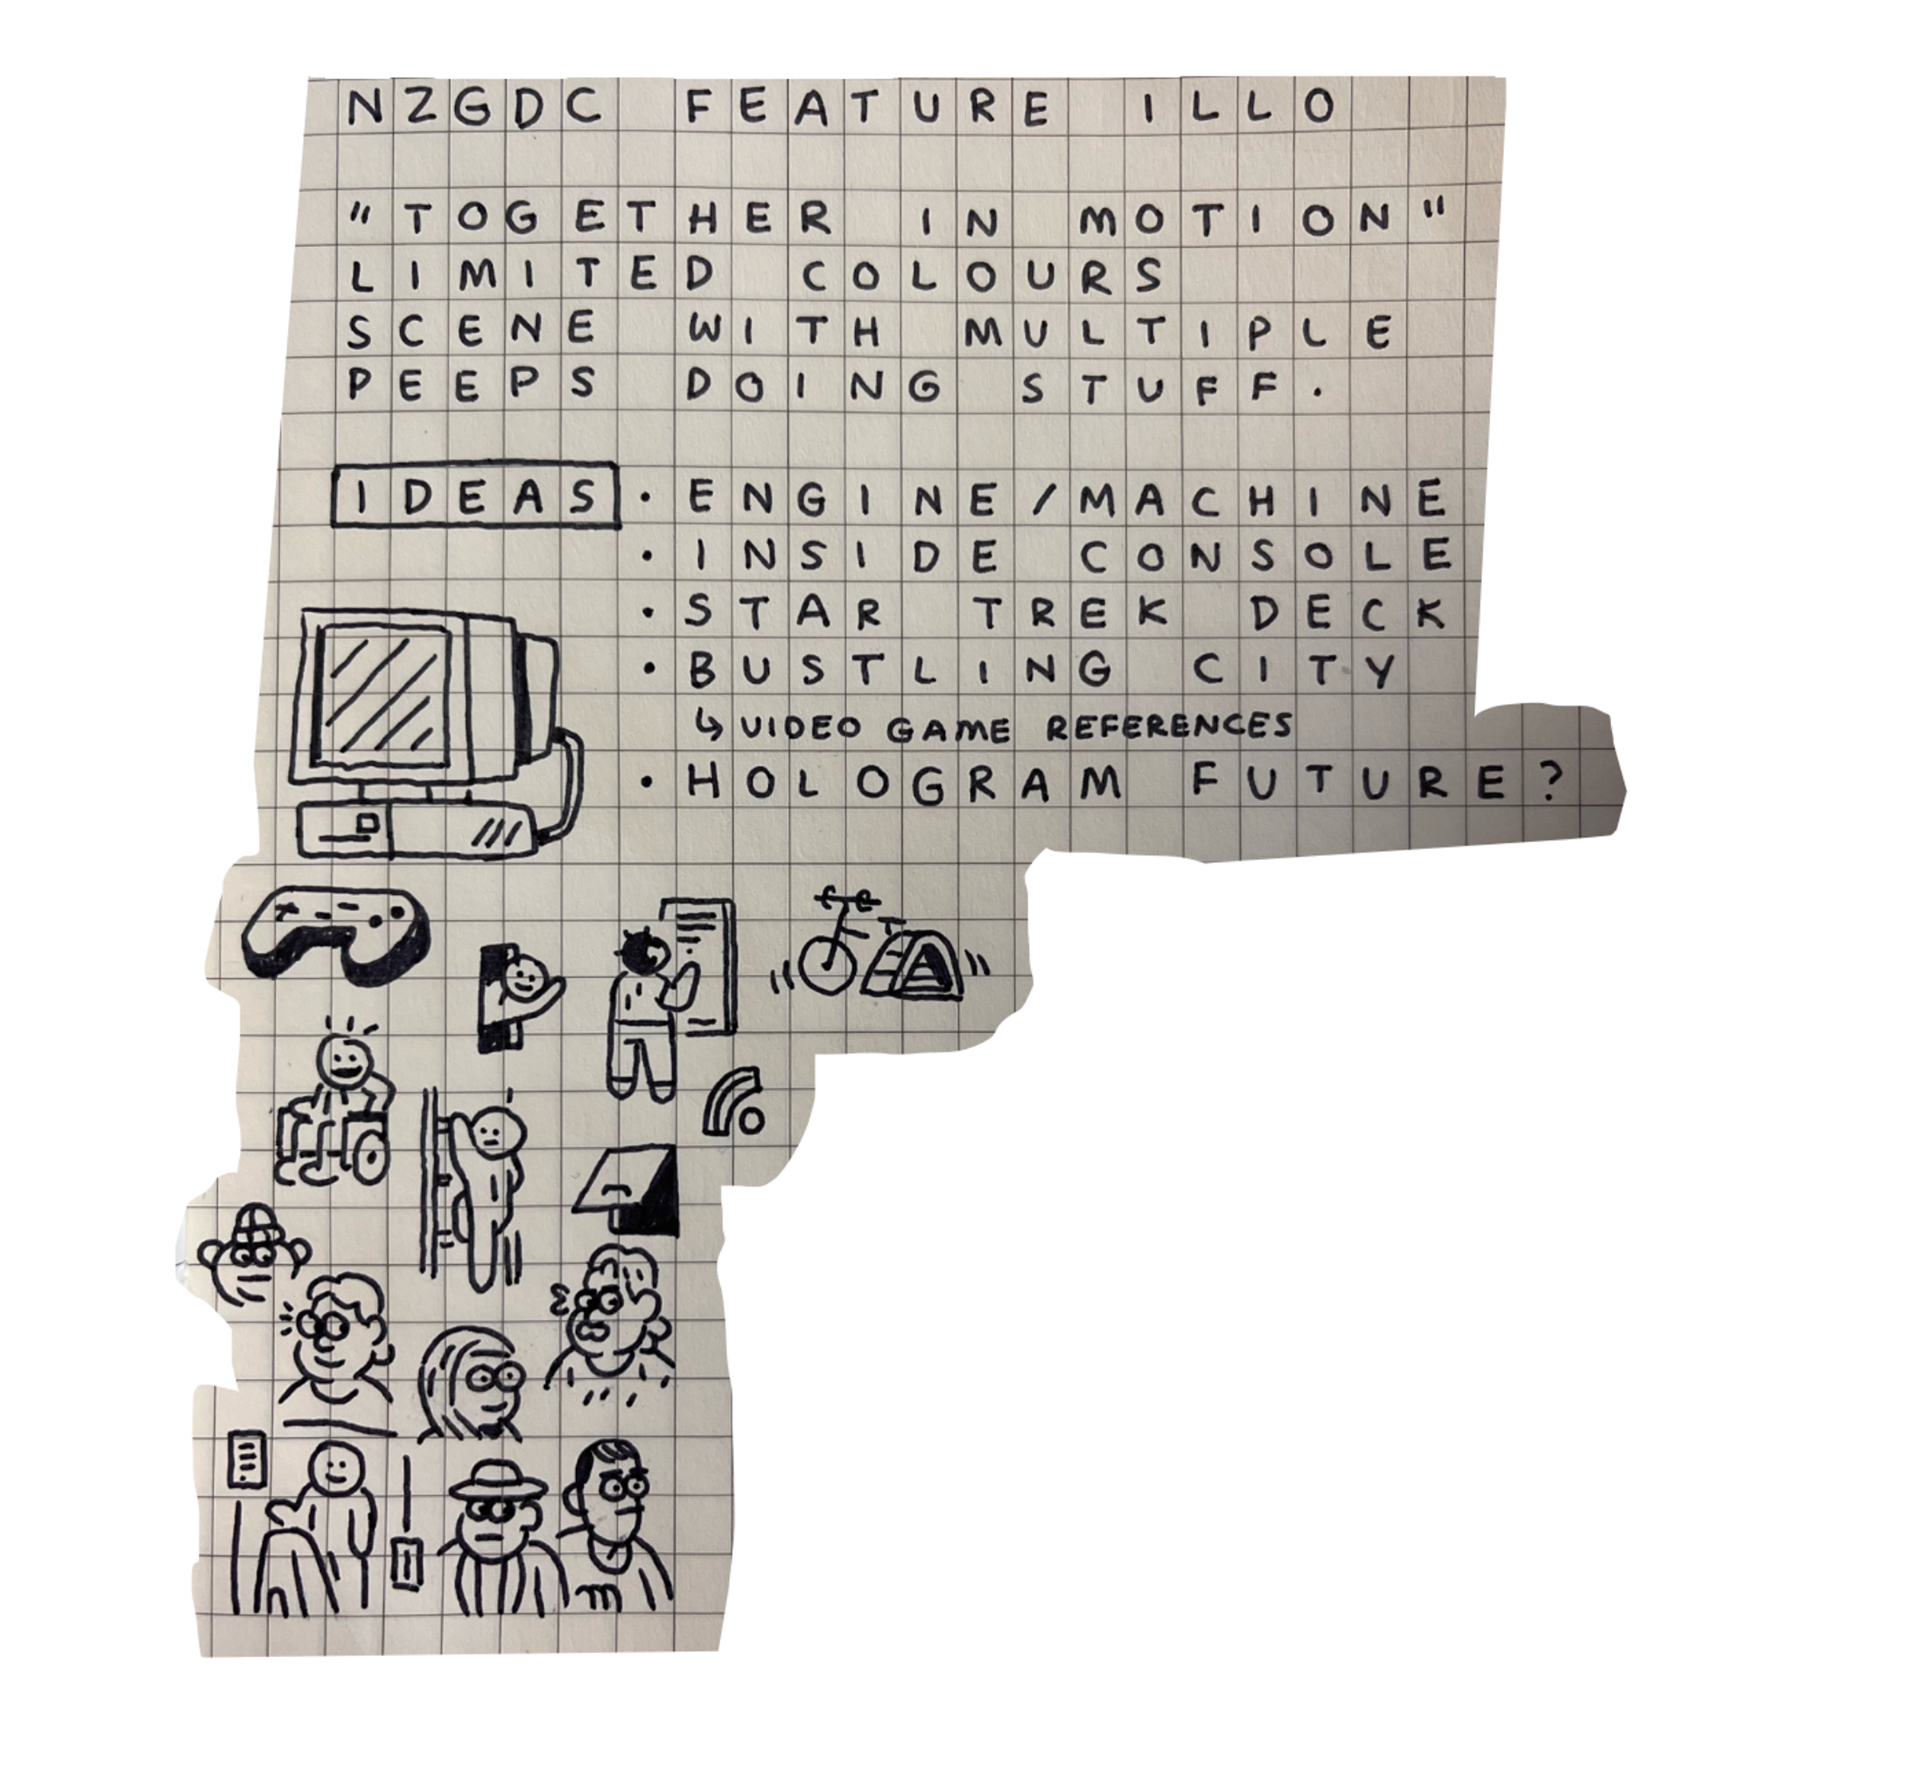 NZGDC FEATURE ILLO
"TOGETHER IN MOTION"
LIMITED COLOURS
SCENE WITH MULTIPLE
PEEPS DOING STUFF.
IDEAS
• ENGINE/MACHINE
• INSIDE CONSOLE
• STAR TREK DECK
• BUSTLING CITY
↳ VIDEO GAME REFERENCES
• HOLOGRAM FUTURE?